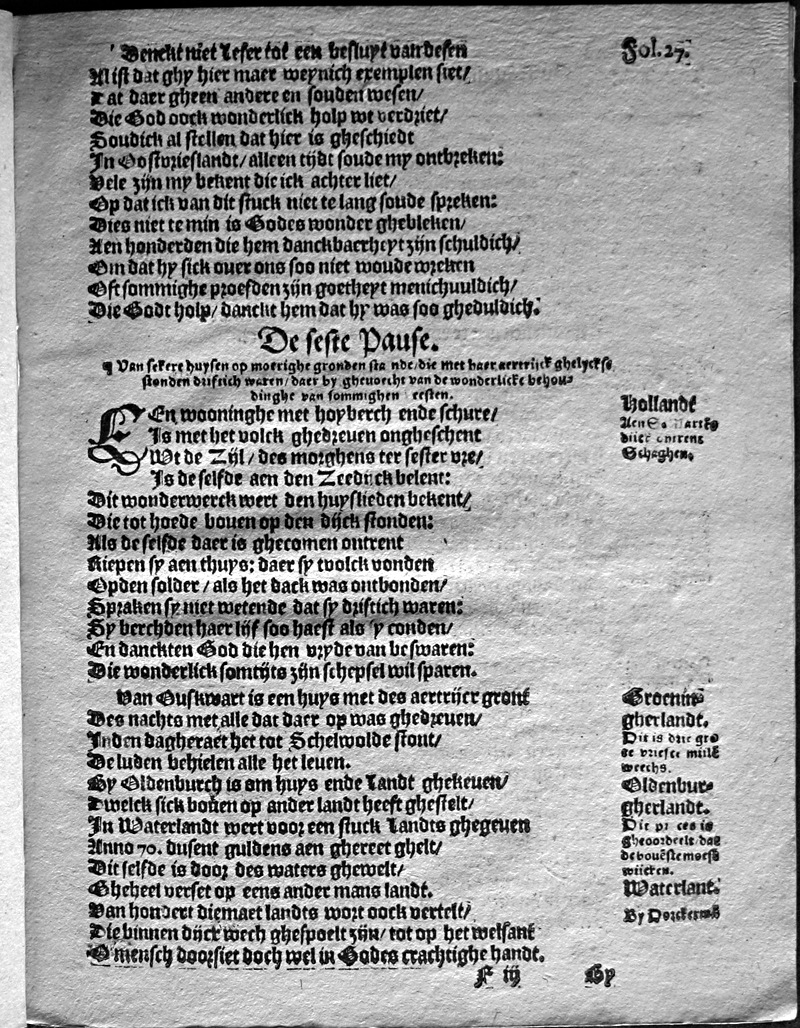 Fol. 27.
Denckt niet Leser tot een besluyt van desen
Al ist dat ghy hier maer weynich exemplen siet/
Dat daer gheen andere en souden wesen/
Die God oock wonderlick holp wt verdriet/
Soudick al stellen dat hier is gheschiedt
In Oostvrieslandt/ alleen tijdt soude my ontbreken:
Vele zijn my bekent die ick achter liet/
Op dat ick van dit stuck niet te lang soude spreken:
Dies niet te min is Godes wonder ghebleken/
Aen honderden die hem danckbaerheyt zijn schuldich/
Om dat hy sick ouer ons soo niet woude wreken
Oft sommighe proefden zijn goetheyt menichuuldich/
Die Godt holp/ danckt hem dat hy was soo gheduldich.
De seste Pause.
¶ Van sekere huysen op moerighe gronden staende/ die met haer aertrijck ghelyck se
stonden driftich waren/ daer by gheuoecht van de wonderlicke behou-
dinghe van sommighen beesten.
EEn wooninghe met hoyberch ende schure/
Is met het volck ghedreuen ongheschent
Wt de Zijl/ des morghens ter sester vre/
Is de selfde aen den Zeedijck belent:
Dit wonderwerck wert den huyslieden bekent/
Die tot hoede bouen op den dijck stonden:
Als de selfde daer is ghecomen ontrent
Riepen sy aen thuys: daer sy tvolck vonden
Op den solder/ als het dack was ontbonden/
Spraken sy niet wetende dat sy driftich waren:
Sy berchden haer lijf soo haest als sy conden/
En danckten God die hen vryde van beswaren:
Die wonderlick somtijts zijn schepsel wil sparen.
Hollandt
Aen
dijck ontrent
Schaghen.
Van Ouskwart is een huys met des aertrijcx gront
Des nachts met alle dat daer op was ghedreuen/
In den dagheraet het tot Schelwolde stont/
De luden behielen alle het leuen.
By Oldenburch is om huys ende Landt ghekeuen/
Twelck sick bouen op ander landt heeft ghestelt/
In Waterlandt wert voor een stuck Landts ghegeuen
Anno 70. dusent guldens aen ghereet ghelt/
Dit selfde is door des waters ghewelt/
Gheheel verset op eens ander mans landt.
Van hondert diemaet landts wort oock vertelt/
Die binnen dijck wech ghespoelt zijn/ tot op het welsant
O mensch doorsiet doch wel in Godes crachtighe handt.
Groenin-
gherlandt.
Dit is drie gro
te vriese mijlē
weechs.
Oldenbur-
gherlandt.
Dit proces is
gheoordeelt dat
de bouēste moest
wijcken.
Waterlant.
By
F iij
Sy